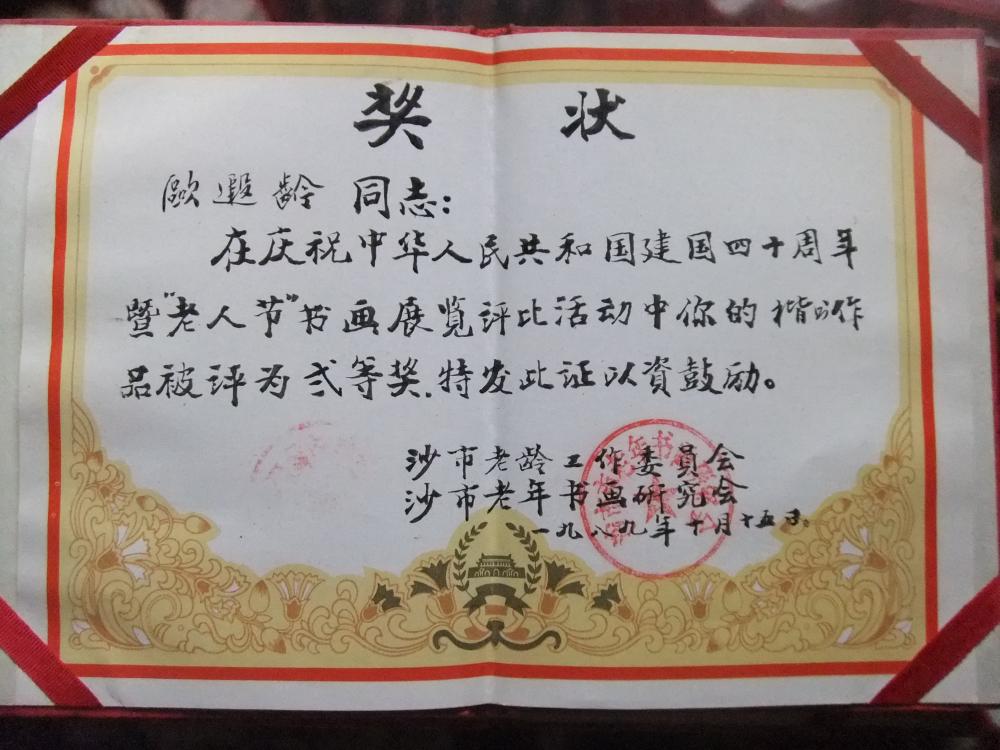 奖状
歐遐龄 同志：
在庆祝中华人民共和国建国四十周年
暨"老人节"书画展览评比活动中你的楷书作
品被评为弍等奖.特发此证以资鼓励。
沙市老龄工作委員会
沙市老年书画研究会
一九八九年十月十五日.